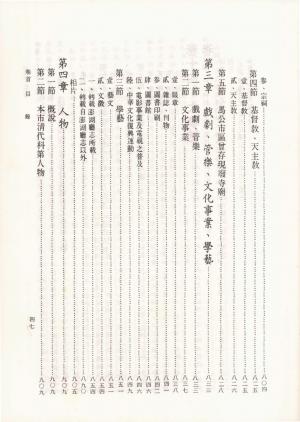 叁、宗祠……八〇四
第四節　基督教、天主教……八二五
壹、基督教……八二五
貳、天主教……八二六
第五節　馬公市區曾存現廢寺廟……八二八
第三章　戲劇、管樂、文化事業、學藝……八三三
第一節　戲劇、管樂……八三三
第二節　文化事業……八三七
壹、報章……八三八
貳、雜誌、刊物……八四一
叁、圖書印刷……八四二
肆、圖書館……八四四
伍、電影事業及電視之普及……八四六
陸、中華文化復興運動……八四八
第三節　學藝……八五一
壹、藝文……八五一
貳、文徵……八五四
一、轉載自澎湖廳志所載……八五四
二、轉載自澎湖廳志以外……八九〇
相片……九〇五
第四章　人物……九〇九
第一節　概說……九〇九
第二節　本市清代科第人物……九〇九
卷首　目錄
四七